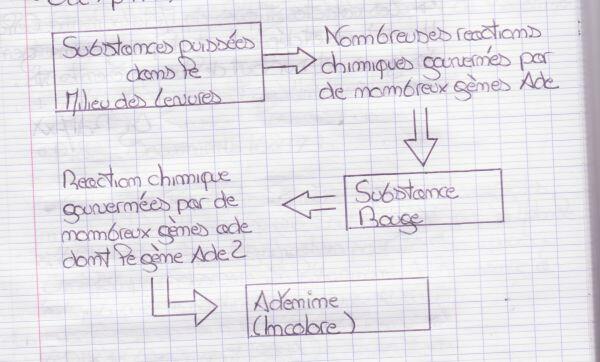 Substances puisées
dans le
Milieu des levures
Nombreuses reactions
chimiques gouvernées par
de nombreux gènes Ade
Substance
Rouge
Reaction chimique
gouvernées par de
nombreux gènes code
dont le gène Ade2
Adénine
(Incolore)